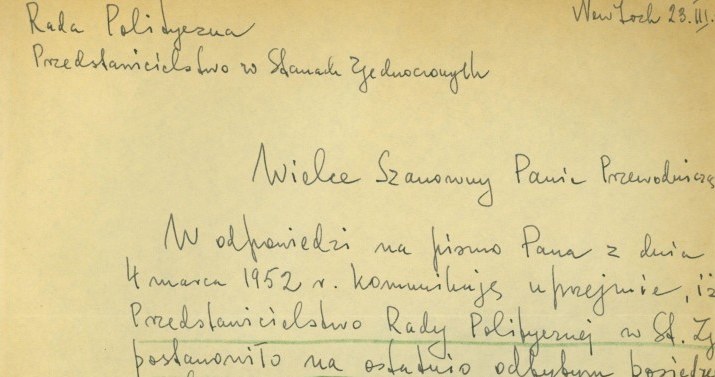 Rada Polityczna
New York 23.III.
Przedstawicielstwo w Stanach Zjednoczonych
Wielce Szanowny Panie Przewodnicząc
W odpowiedzi na pismo Pana z dnia
4 marca 1952 r. komunikuję uprzejmie, iż
Przedstawicielstwo Rady Politycznej w St. Zj
postanowiło na ostatnio odbytym posiedze